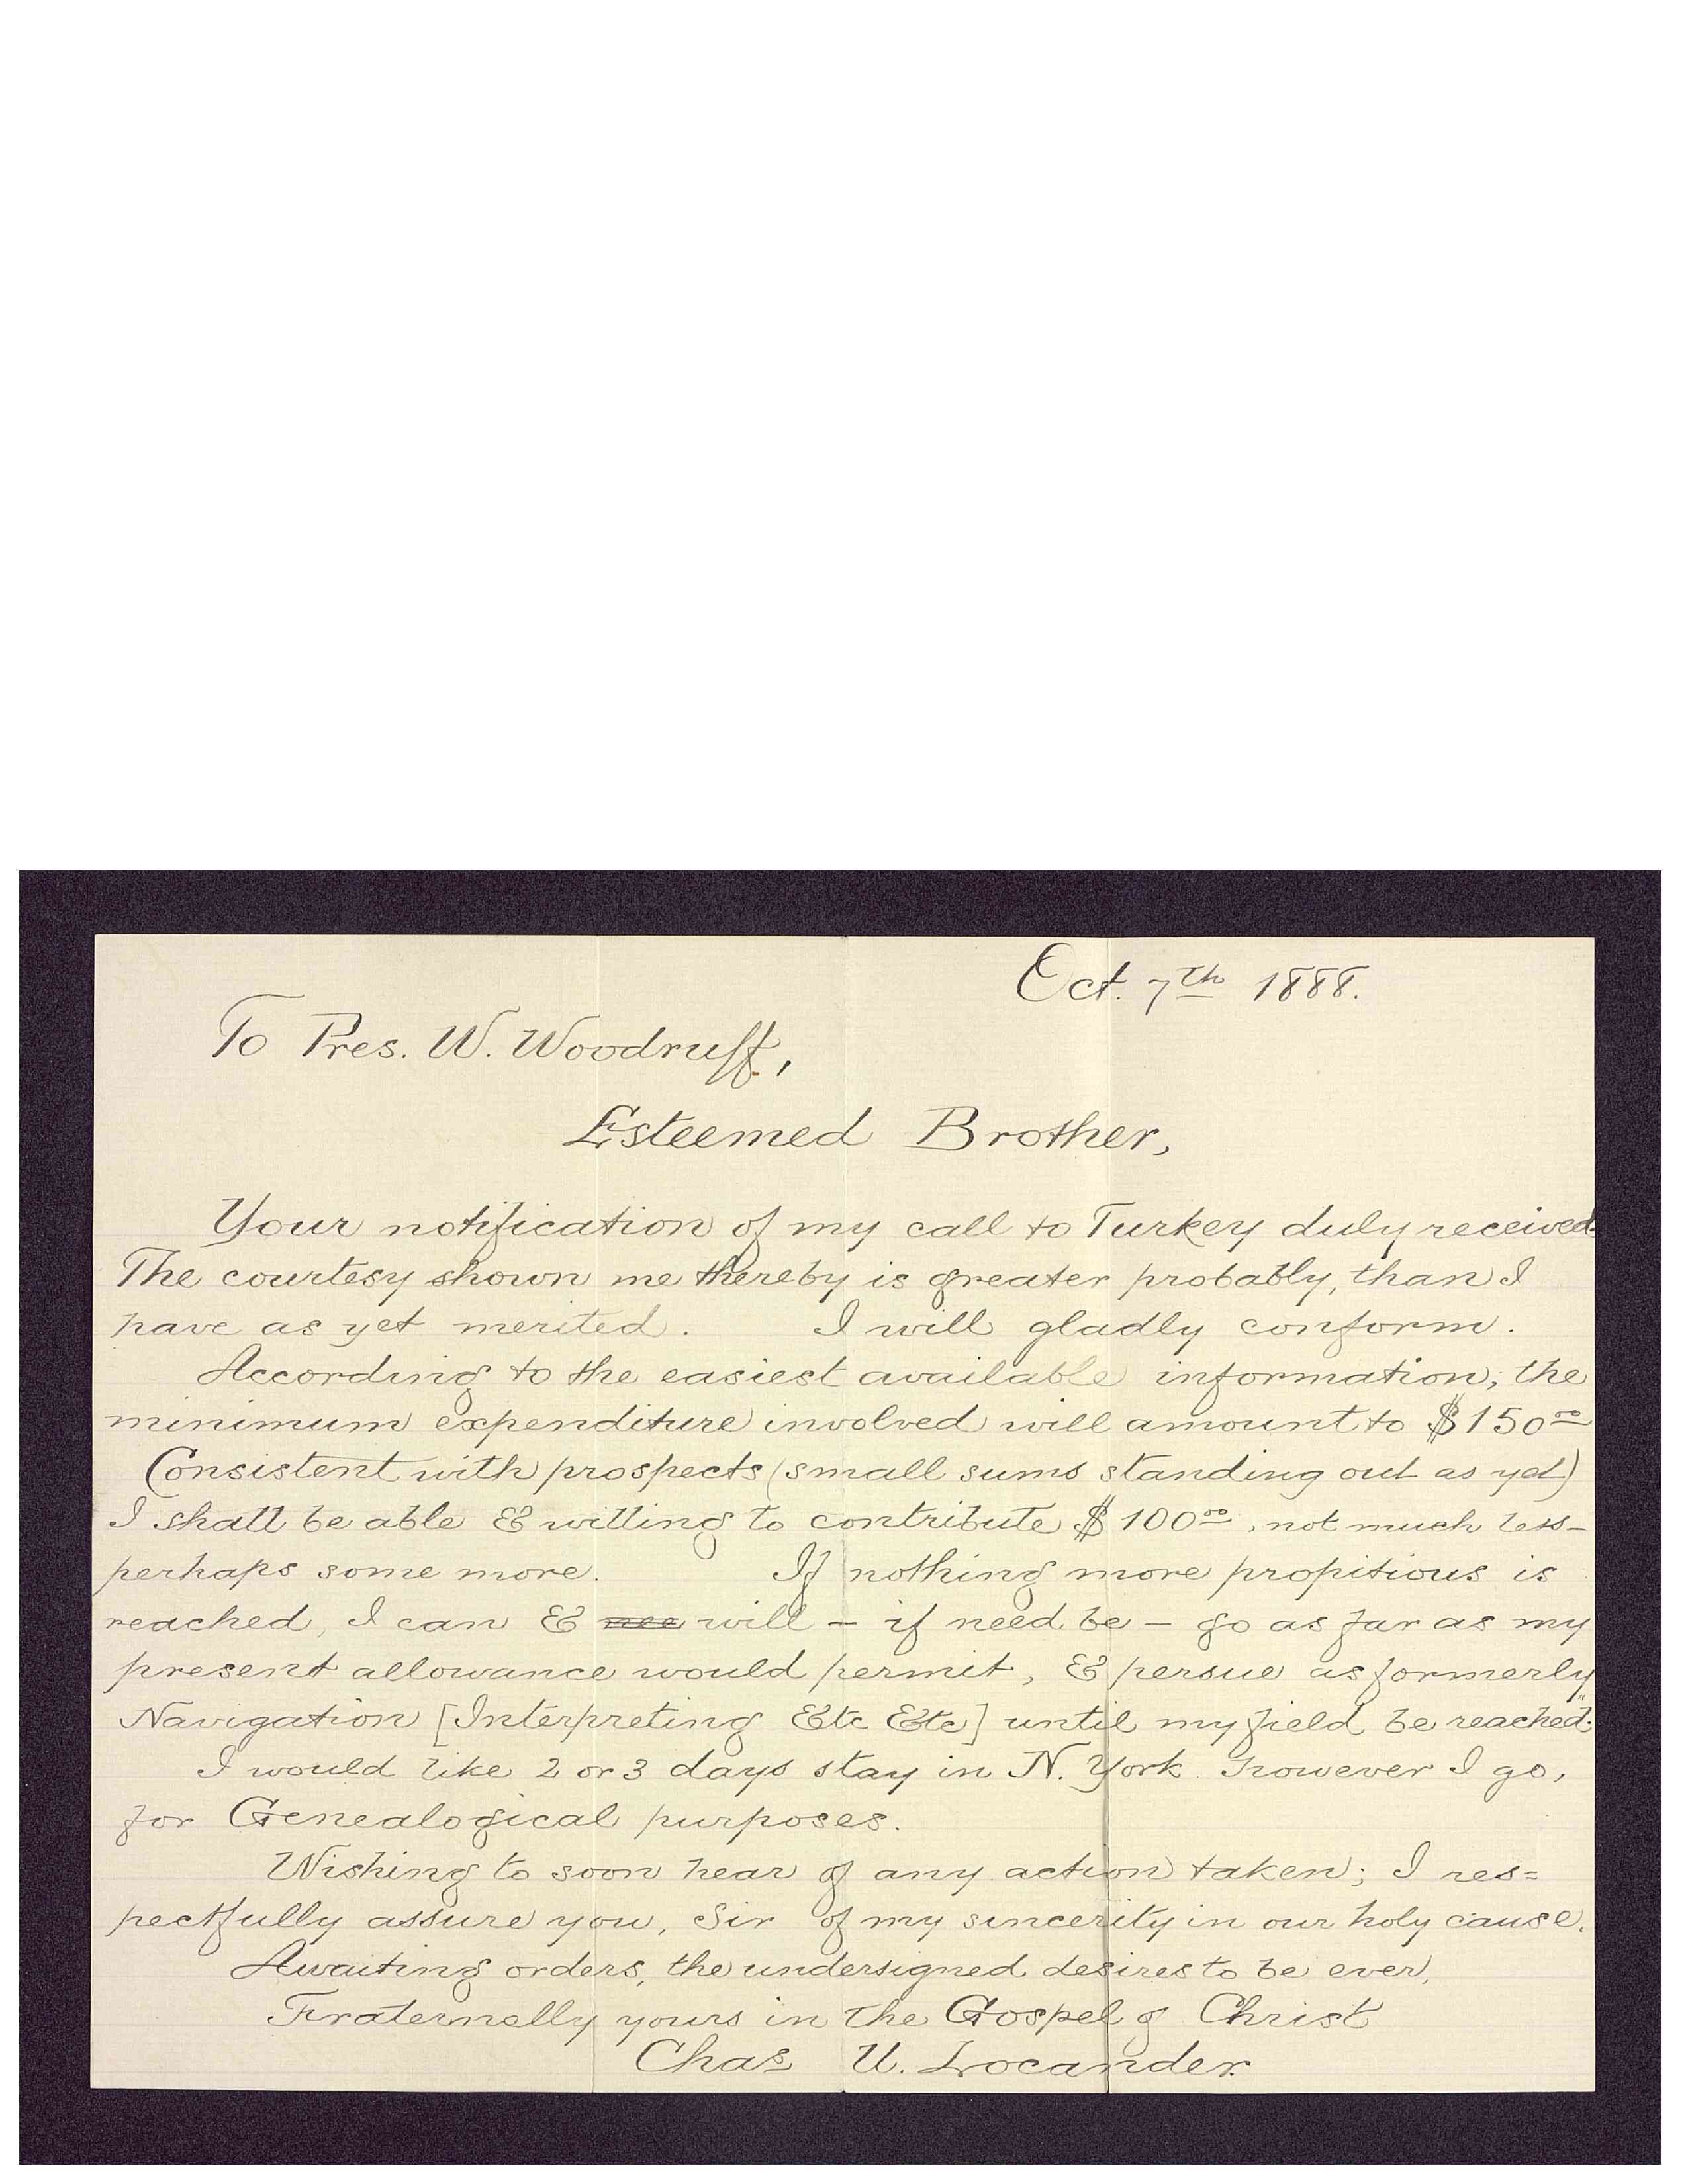 Oct. 7th 1888.
To Pres. W. Woodruff,
Esteemed Brother,
Your notification of my call to Turkey duly received.
The courtesy shown me thereby is greater probably, than I
have as yet merited. I will gladly conform.
According to the easiest available information, the
minimum expenditure involved will amount to $150 00
Consistent with prospects (small sums standing out as yet)
I shall be able & willing to contribute $100 00, not much less-
perhaps some more. If nothing more propitious is
reached, I can & nee will – if need be – go as far as my
present allowance would permit, & persue as formerly
Navigation [Interpreting Etc Etc] until my field be reached.
I would like 2 or 3 days stay in N. York. However I go,
for Genealogical purposes.
Wishing to soon hear of any action taken; I res=
pectfully assure you, Sir of my sincerity in our holy cause.
Awaiting orders, the undersigned desires to be ever,
Fraternally yours in the Gospel of Christ
Chas U. Locander.